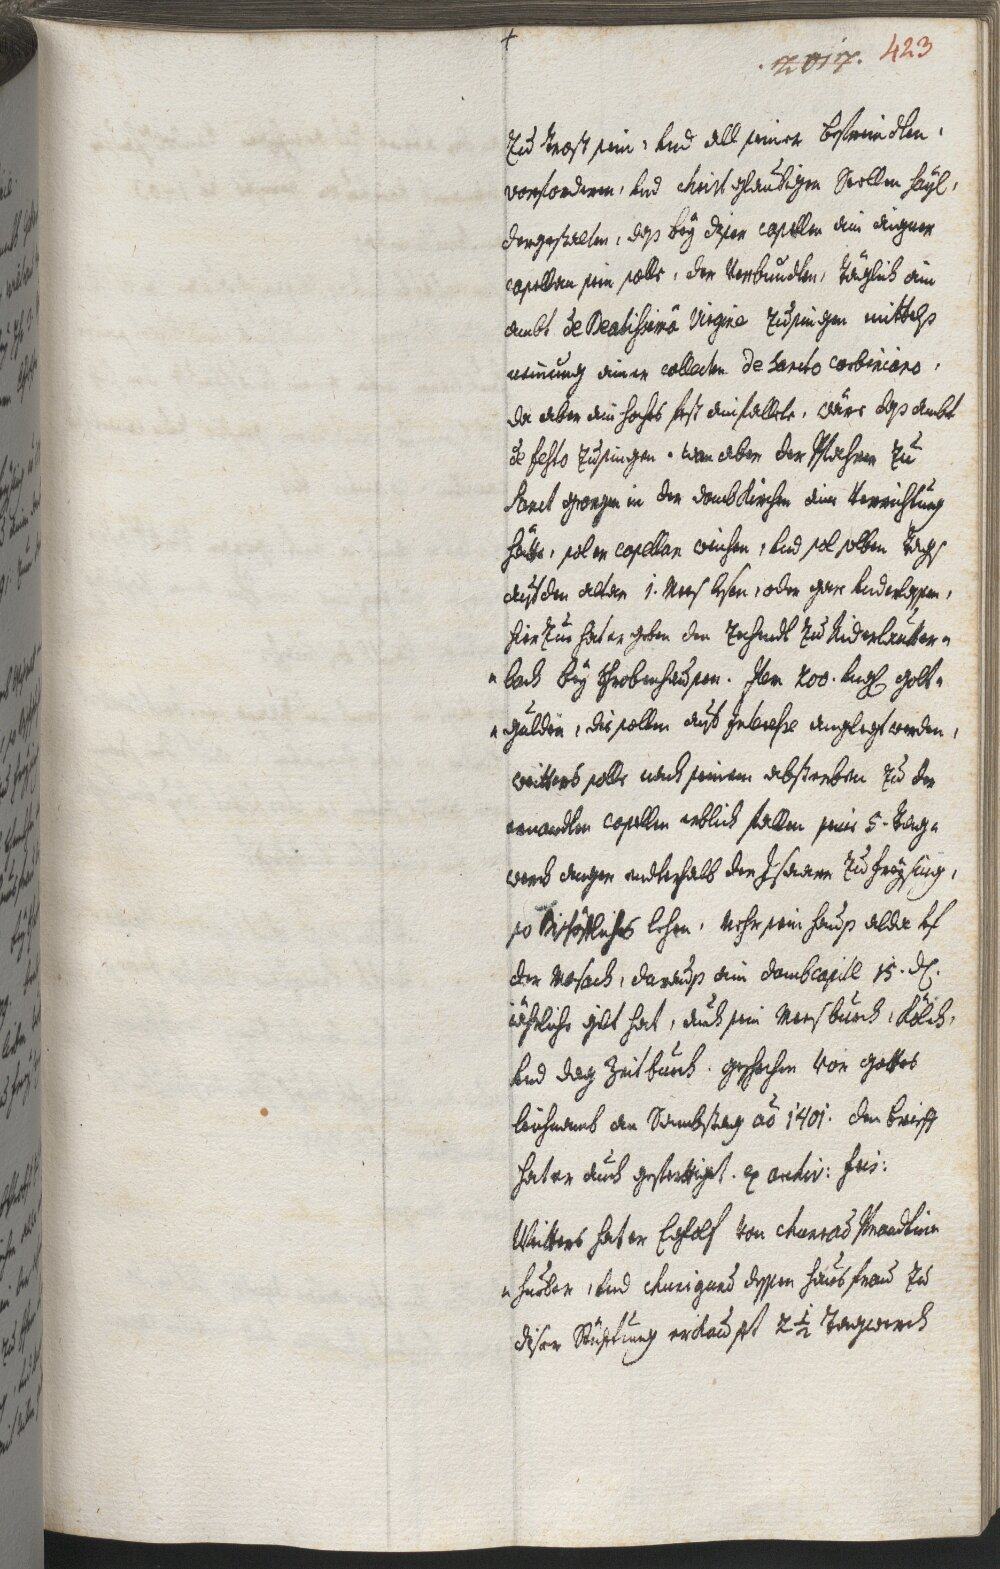 +
. 2017. 423
Zu trost sein, und all seiner befreindten,
vorfordern, und christglaubigen Seellen hayl,
dergestalten, das bey diser capellen ain aigner
capellan sein solle, der verbundten, täglich ain
ambt de Beatissima Virgine zu singen mittelß
einer collecten de Sancto corbiniano,
da aber ain hoches fest ainfallete, wäre das ambt
de festo zu singen. wan aber der Pfahrer zu
Sanct georgen in der dombkirchen aine verrichtung
hätte, sol er capellan weichen, und sol selben tags
auf den altar 1. Mess lesen, oder gar underlassen,
hierzue hat er geben den Zehendt zu Niderlautter-
-bach bey Schrobenhausen. Item 200. ung. golt-
-gulden, die sollen auf Interesse anglegt werden,
weitters solle nach seinem absterben zu der
ernandten capellen erblich fallen seine 5. tag-
werch anger enderhalb der Isaarn zu Freysing,
so Bischöffliches lehen, mehr sein haus alda uf
der Mosach, daraus ain dombcapitl 15. d.
jährliche gilt hat, auch sein Messbuech, Kölch,
und das Zeitbuech. geschechen vor gottes
leichnamb am Sambstag ao 1401. den brieff
hat er auch gefertiget. ex archiv: fris:
Weitters hat er Eglolf von chunrad
-hueber, und chunigund dessen hausfrau zu
diser Stüfftung erkaufft 2 1/2 tagwerch